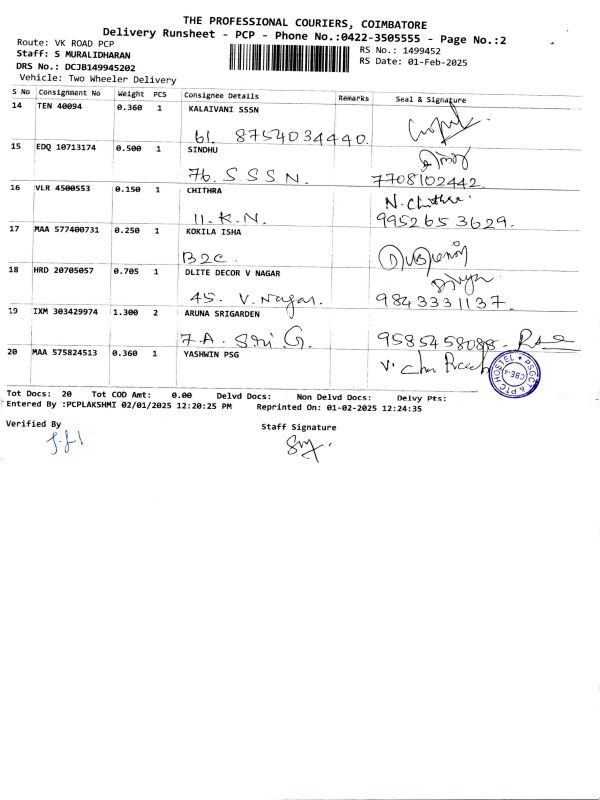 THE PROFESSIONAL COURIERS, COIMBATORE
Delivery Runsheet - PCP - Phone No.:0422-3505555 - Page No.:2
Route: VK ROAD PCP
RS No.: 1499452
Staff: S MURALIDHARAN
RS Date: 01-Feb-2025
DRS No.: DCJB149945202
Vehicle: Two Wheeler Delivery
S No Consignment No Weight PCS Consignee Details Remarks Seal & Signature
14 TEN 40094 0.360 1 KALAIVANI SSSN
61. 8754034440.
15 EDQ 10713174 0.500 1 SINDHU
76. S S S N. 7708102442.
16 VLR 4500553 0.150 1 CHITHRA N.Chithra.
11. K. N. 9952653629.
17 MAA 577400731 0.250 1 KOKILA ISHA
B2C.
18 HRD 20705057 0.705 1 DLITE DECOR V NAGAR Divya
45. V. Nagar. 9843331137.
19 IXM 303429974 1.300 2 ARUNA SRIGARDEN
7.A. Sri G. 9585458088.
20 MAA 575824513 0.360 1 YASHWIN PSG
PSGCT & PTC HOSTEL CBE-4
Tot Docs: 20 Tot COD Amt: 0.00 Delvd Docs: Non Delvd Docs: Delvy Pts:
Entered By :PCPLAKSHMI 02/01/2025 12:20:25 PM Reprinted On: 01-02-2025 12:24:35
Verified By
Staff Signature